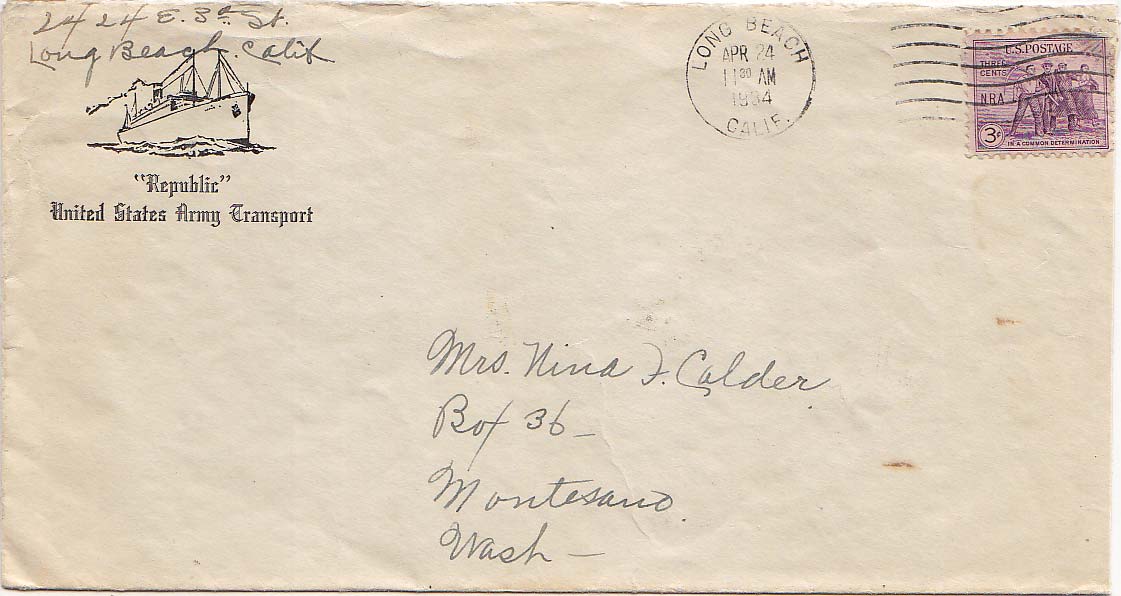 2424 E. 3rd St.
Long Beach. Calif
"Republic"
United States Army Transport
LONG BEACH
APR 24
11 30 AM
1934
CALIF.
U.S. POSTAGE
THREE
CENTS
NRA
3¢
IN A COMMON DETERMINATION
Mrs. Nina F. Calder
Box 36 –
Montesano.
Wash –